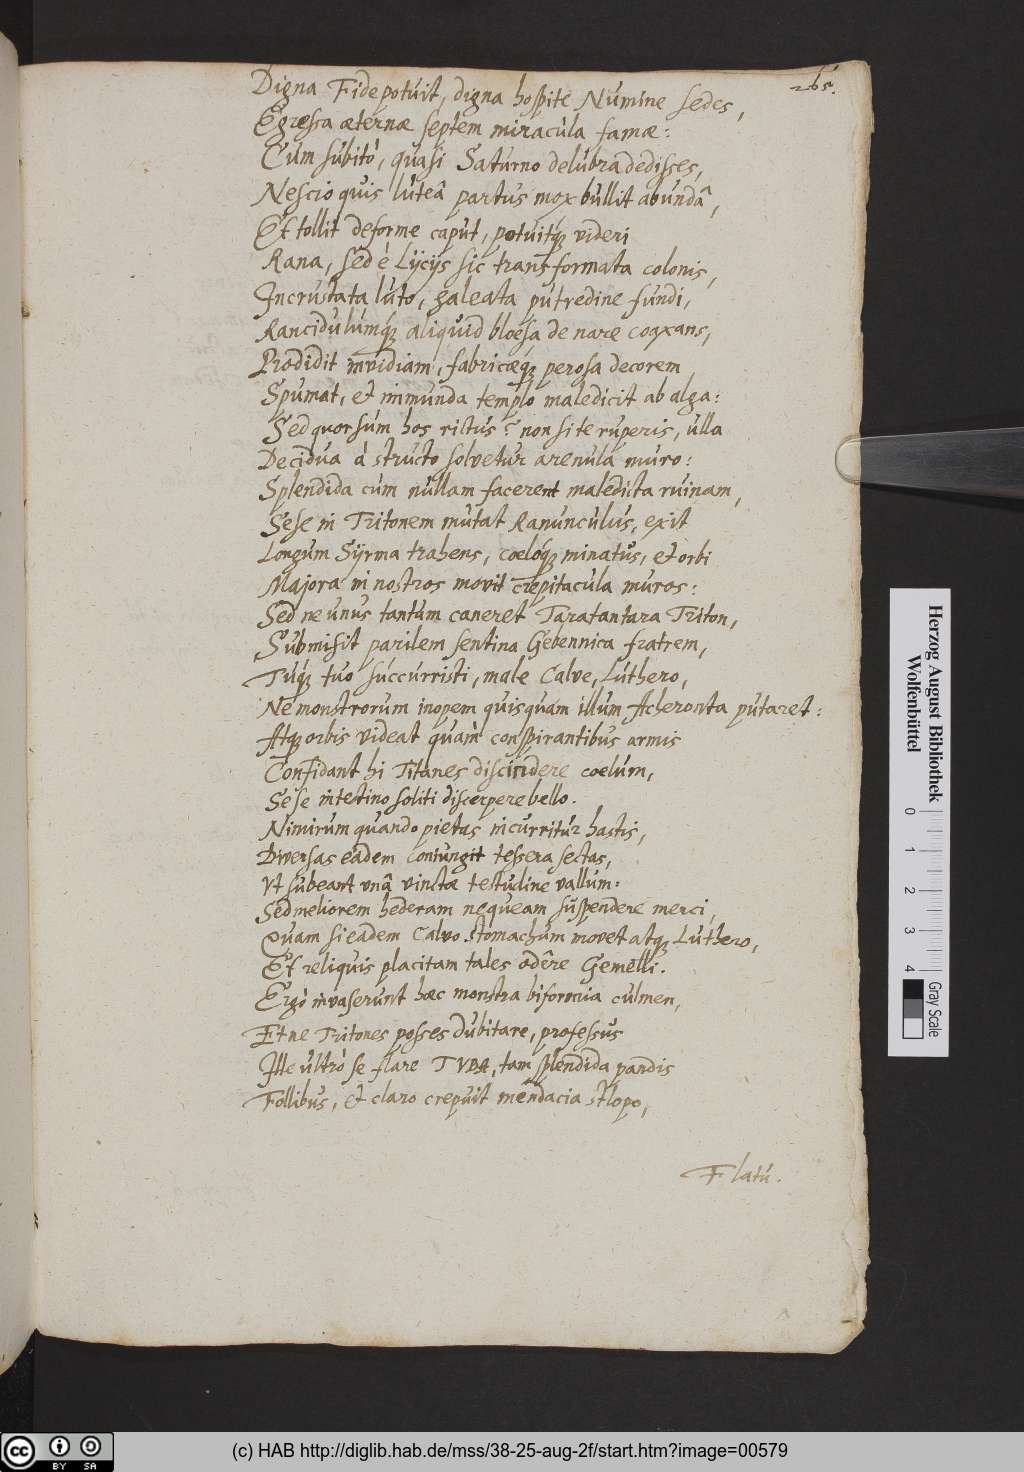 265.
Digna Fide potuit, digna hospite Numine sedes,
Egressa æternæ septem miracula famæ:
Cùm subitò, quasi Saturno delubra dedisses,
Nescio quis luteâ partus mox bullit abundâ,
Et tollit deforme caput, potuitq videri
Rana, sed è Lÿcÿs sic transformata colonis,
Incrustata luto, galeata putredine fundi,
Rancidulúmq aliquid blœsa de nare coaxans,
Prodidit invidiam, fabricæq perosa decorem
Spumat, et immunda templo maledicit ab alga:
Sed quorsùm hos rictus? non si te ruperis, ulla
Decidua à structo solvetur arenula muro:
Splendida cùm nullam facerent maledicta ruinam,
Sese in Tritonem mutat Ranunculus, exit
Longum Sÿrma trahens, cœlóq minatus, et orbi
Majora in nostros movit crepitacula muros:
Sed ne unus tantùm caneret Taratantara Triton,
Submisit parilem sentina Gebennica fratrem,
Túq tuo succurristi, male Calve, Luthero,
Ne monstrorum inopem quisquam illum Acheronta putaret:
Atq orbis videat quàm conspirantibus armis
Confidant hi Titanes discindere cœlum,
Sese intestino soliti discerpere bello.
Nimirum quando pietas incurritùr hastis,
Diversas eadem coniungit tessera sectas,
Vt subeant vnâ vinctæ testudine vallum:
Sed meliorem hederam nequeam suspendere merci,
Quam si eadem Calvo stomachum movet atq Luthero,
Et reliquis placitam tales odêre Gemelli.
Ergò invaserunt hæc monstra biformia culmen,
Et ne Tritones posses dubitare, professus
Ille ultrò se flare TVBA, tam splendida pandis
Follibus, et claro crepuit mendacia stlopo,
Flatu.
Herzog August Bibliothek
Wolfenbüttel
0 1 2 3 4
Gray Scale
cc BY SA
(c) HAB http://diglib.hab.de/mss/38-25-aug-2f/start.htm?image=00579